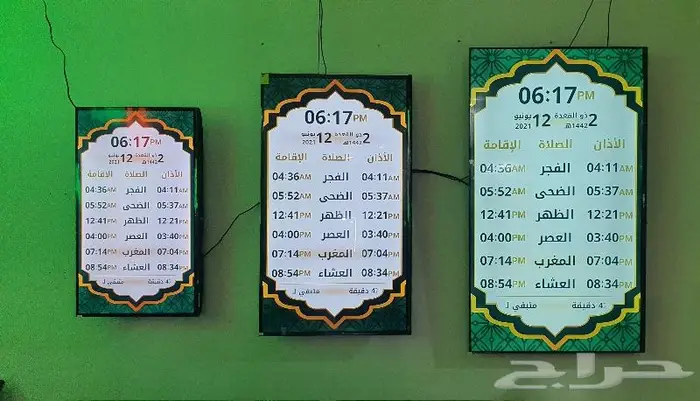 06:17PM
2 ذو القعدة 1442هـ 12 يونيو 2021
الأذان الصلاة الإقامة
04:11AM الفجر 04:36AM
05:37AM الضحى 05:52AM
12:21PM الظهر 12:41PM
03:40PM العصر 04:00PM
07:04PM المغرب 07:14PM
08:34PM العشاء 08:54PM
متبقي لـ
06:17PM
2 ذو القعدة 1442هـ 12 يونيو 2021
الأذان الصلاة الإقامة
04:11AM الفجر 04:36AM
05:37AM الضحى 05:52AM
12:21PM الظهر 12:41PM
03:40PM العصر 04:00PM
07:04PM المغرب 07:14PM
08:34PM العشاء 08:54PM
47 دقيقة متبقي لـ
06:17PM
2 ذو القعدة 1442هـ 12 يونيو 2021
الأذان الصلاة الإقامة
04:11AM الفجر 04:36AM
05:37AM الضحى 05:52AM
12:21PM الظهر 12:41PM
03:40PM العصر 04:00PM
07:04PM المغرب 07:14PM
08:34PM العشاء 08:54PM
47 دقيقة متبقي لـ
حراج